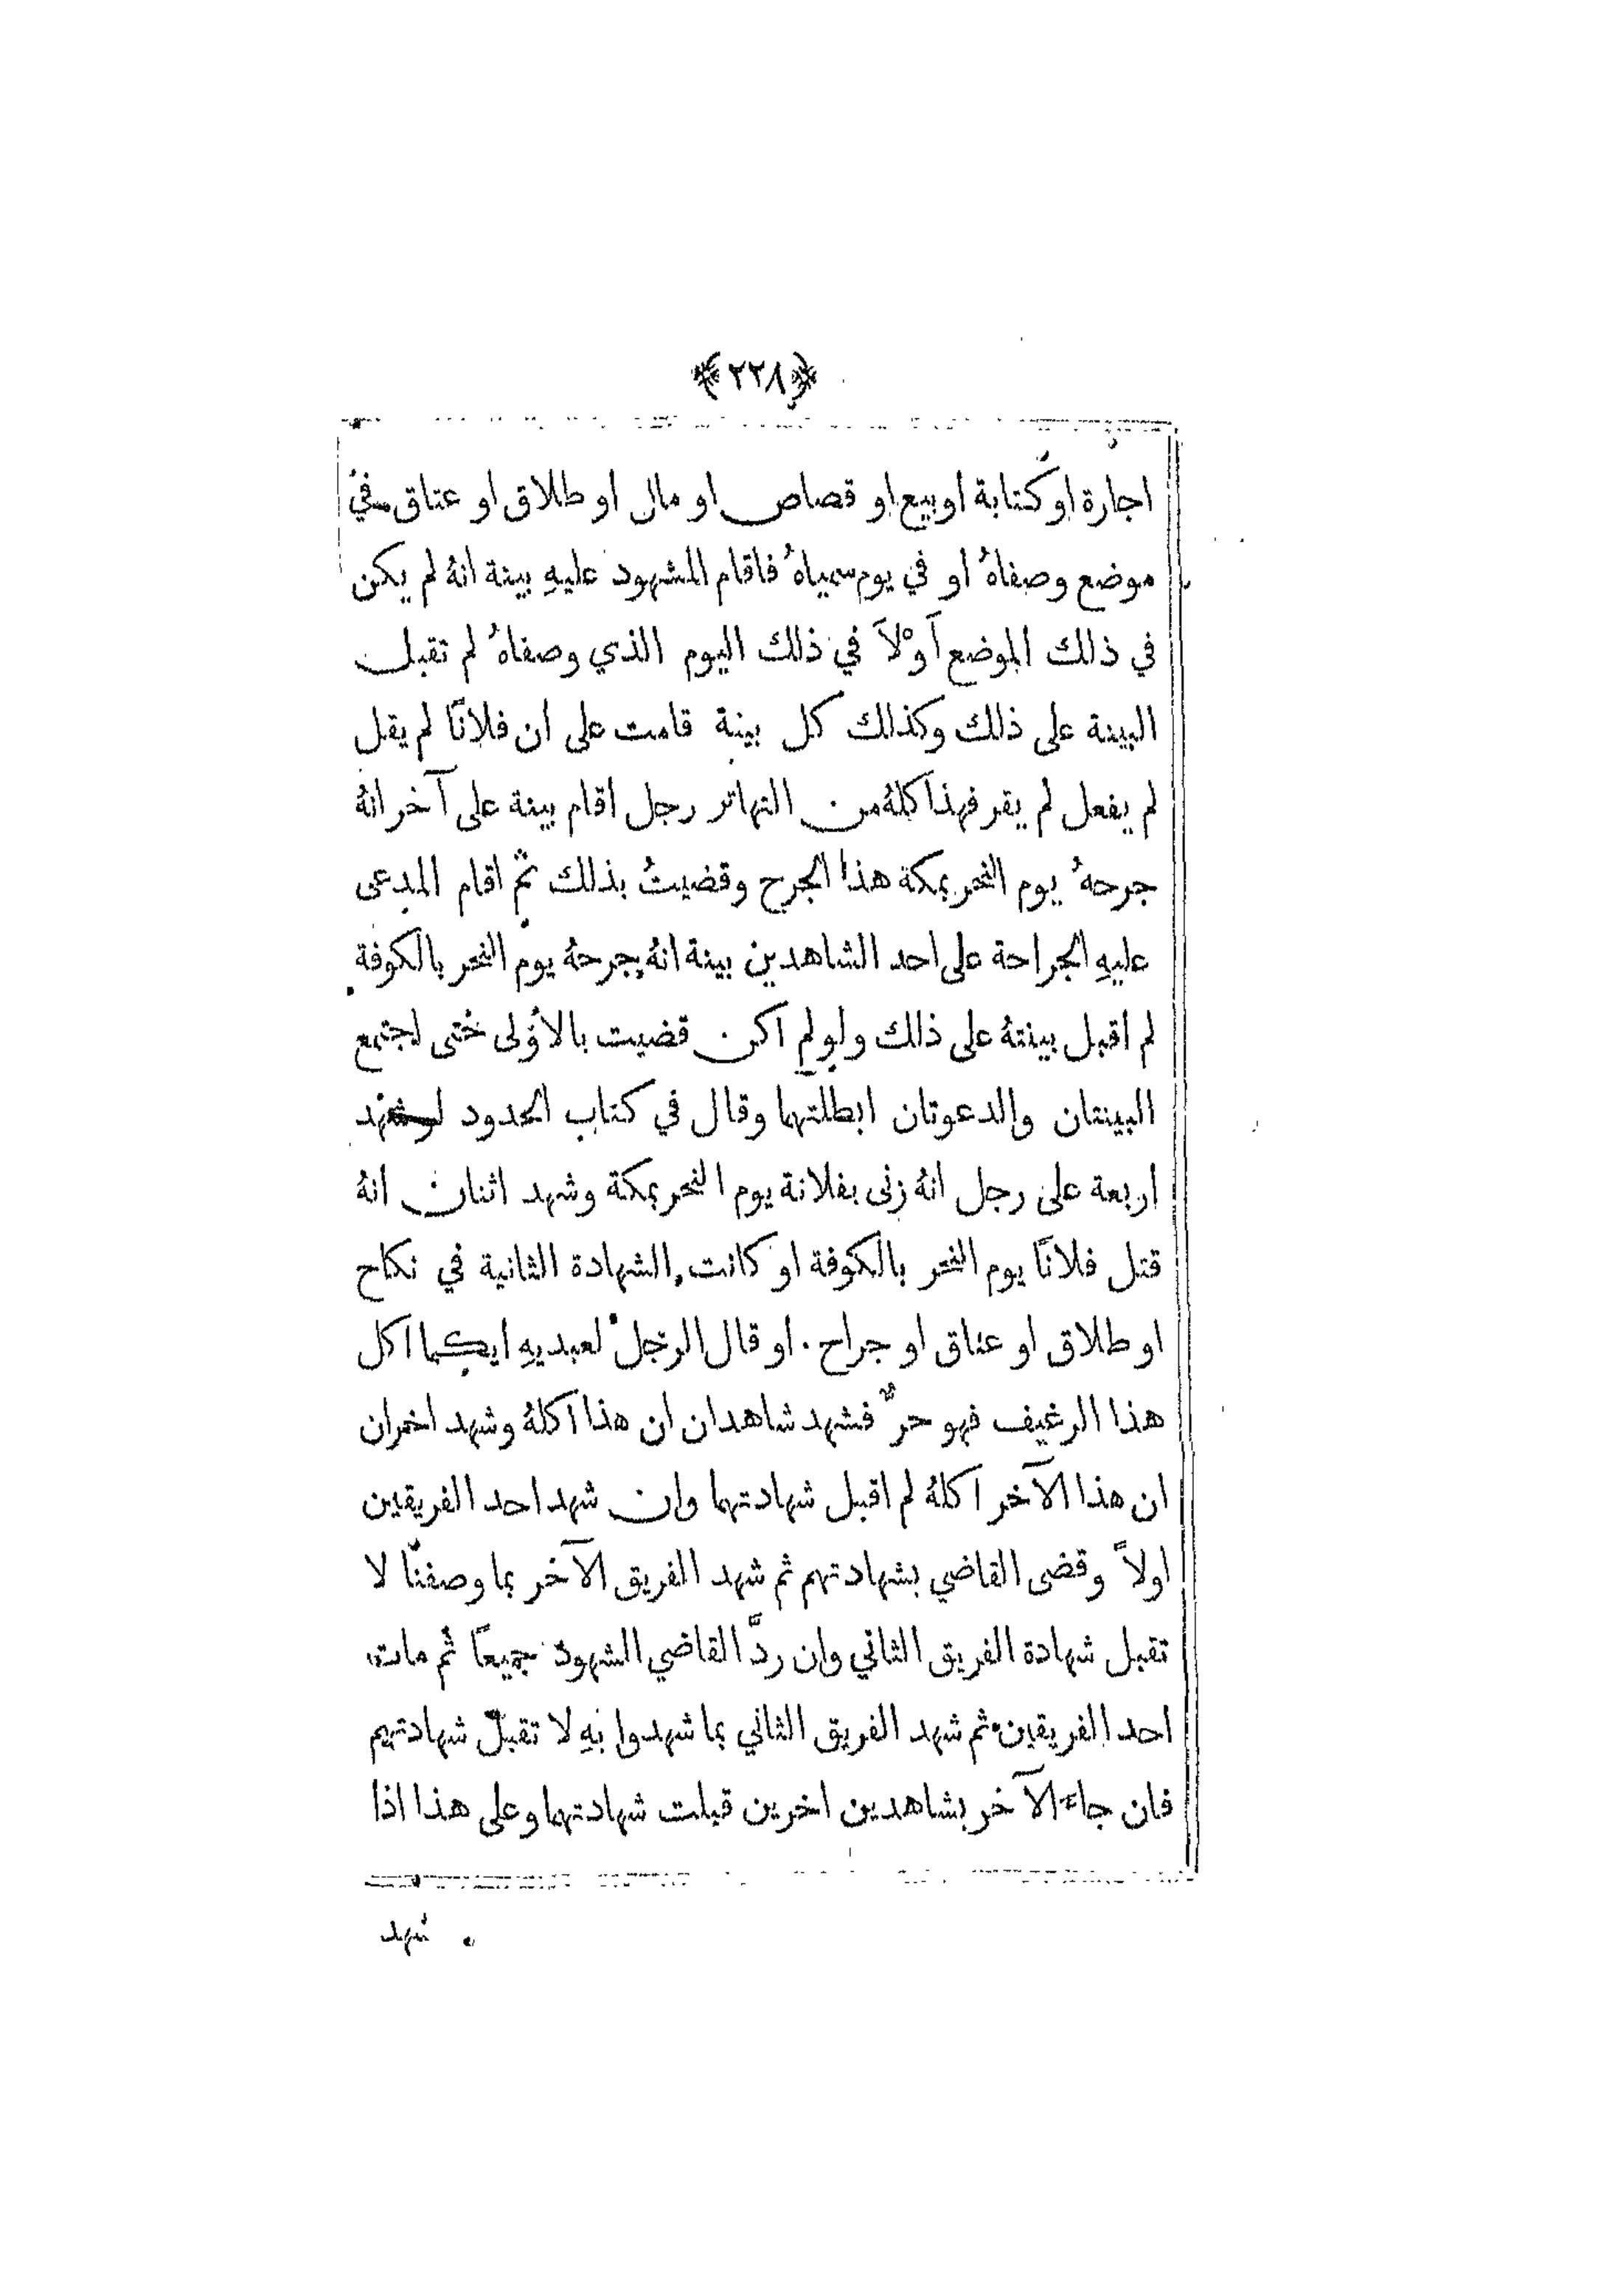 ﴿٢٢٨﴾
اجارة او كتابة او بيع او قصاص او مال او طلاق او عتاق في
موضع وصفاهُ او في يوم سمياهُ فاقام المشهود عليهِ بينة انهُ لم يكن
في ذلك الموضع اولاً في ذلك اليوم الذي وصفاهُ لم تقبل
البينة على ذلك وكذلك كل بينة قامت على ان فلانًا لم يقل
لم يفعل لم يقر فهذا كلهُ من التهاتر رجل اقام بينة على آخر انهُ
جرحهُ يوم النحر بمكة هذا الجرح وقضيتُ بذلك ثم اقام المدعى
عليهِ الجراحة على احد الشاهدين بينة انهُ جرحهُ يوم النحر بالكوفة
لم اقبل بينتهُ على ذلك ولو لم اكن قضيت بالاولى حتى اجتمع
البينتان والدعوتان ابطلتهما وقال في كتاب الحدود لو شهد
اربعة على رجل انهُ زنى بفلانة يوم النحر بمكة وشهد اثنان انهُ
قتل فلانًا يوم النحر بالكوفة او كانت الشهادة الثانية في نكاح
او طلاق او عتاق او جراح . او قال الرجل لعبديهِ ايكما اكل
هذا الرغيف فهو حرٌ فشهد شاهدان ان هذا اكلهُ وشهد اخران
ان هذا الآخر اكلهُ لم اقبل شهادتهما وان شهد احد الفريقين
اولاً وقضى القاضي بشهادتهم ثم شهد الفريق الآخر بما وصفنا لا
تقبل شهادة الفريق الثاني وان ردَّ القاضي الشهود جميعًا ثم مات
احد الفريقين ثم شهد الفريق الثاني بما شهدوا بهِ لا تقبل شهادتهم
فان جاء الآخر بشاهدين اخرين قبلت شهادتهما وعلى هذا اذا
شهد